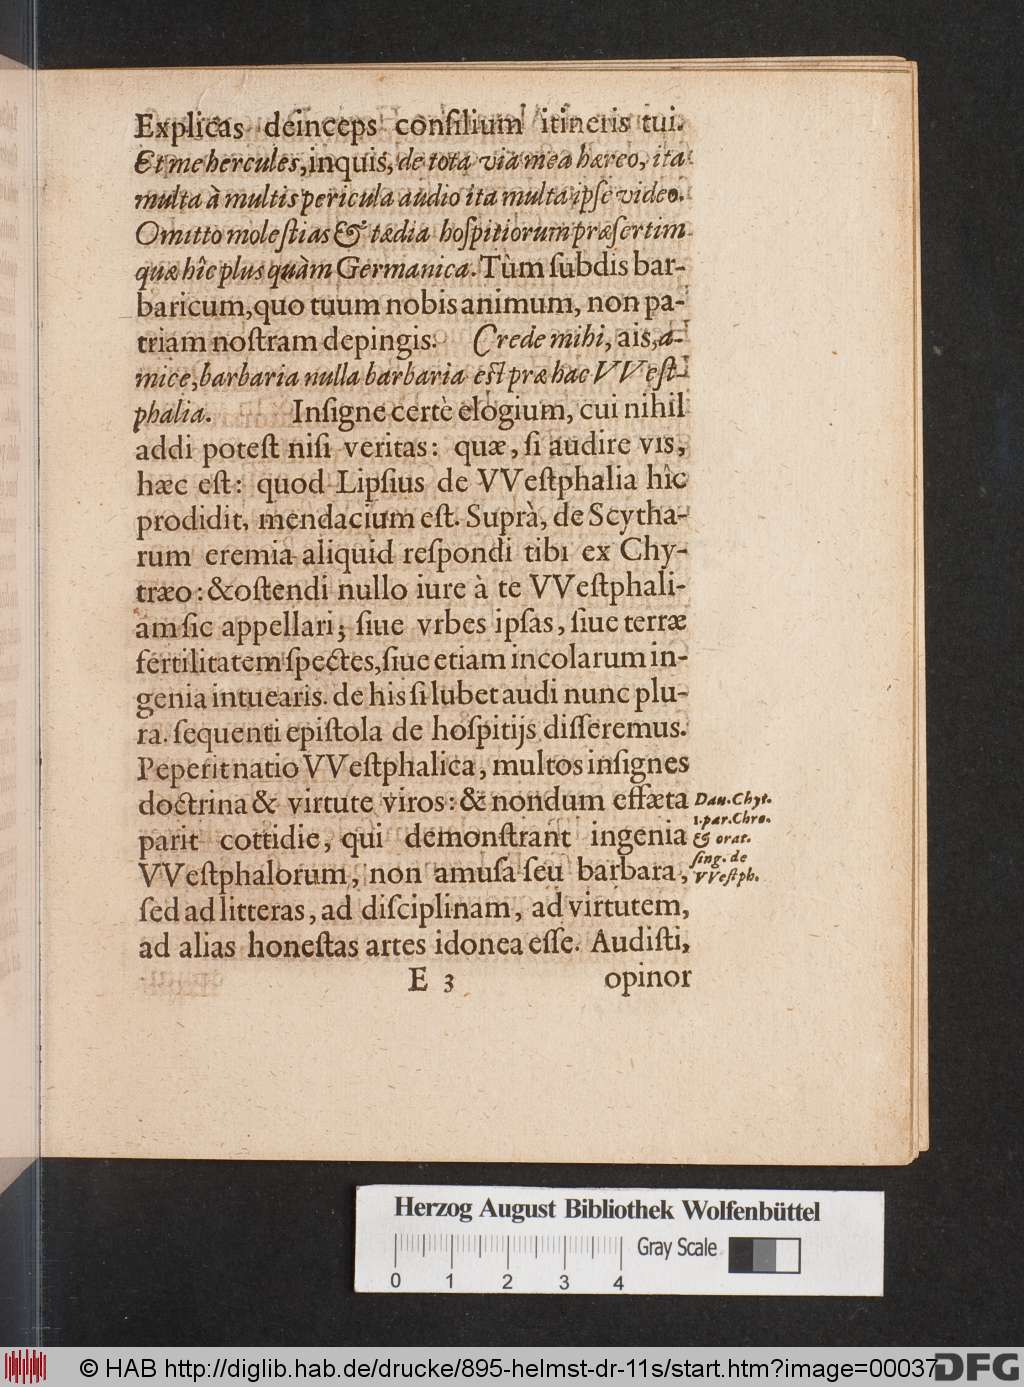 Explicas deinceps conſilium itineris tui.
Et me hercules, inquis, de tota via mea hæreo, ita
multa à multis pericula audio ita multa ipſe video.
Omitto moleſtias & tædia hoſpitiorum præſertim
quæ hîc plus quàm Germanica. Tùm ſubdis bar-
baricum, quo tuum nobis animum, non pa-
triam noſtram depingis. Crede mihi, ais, a-
mice, barbaria nulla barbaria eſt præ hac VVeſt-
phalia. Inſigne certè elogium, cui nihil
addi poteſt niſi veritas: quæ, ſi audire vis,
hæc eſt: quod Lipſius de VVeſtphalia hîc
prodidit, mendacium eſt. Suprà, de Scytha-
rum eremia aliquid reſpondi tibi ex Chy-
træo: & oſtendi nullo iure à te VVeſtphali-
am ſic appellari; ſiue vrbes ipſas, ſiue terræ
fertilitatem ſpectes, ſiue etiam incolarum in-
genia intuearis. de his ſi lubet audi nunc plu-
ra. ſequenti epiſtola de hoſpitijs diſſeremus.
Peperit natio VVeſtphalica, multos inſignes
doctrina & virtute viros: & nondum effæta
parit cottidie, qui demonſtrant ingenia
VVeſtphalorum, non amuſa ſeu barbara,
ſed ad litteras, ad diſciplinam, ad virtutem,
ad alias honeſtas artes idonea eſſe. Audiſti,
E 3 opinor
Dau. Chyt.
1. par. Chro.
& orat.
ſing. de
VVeſtph.
Herzog August Bibliothek Wolfenbüttel
Gray Scale
0 1 2 3 4
© HAB http://diglib.hab.de/drucke/895-helmst-dr-11s/start.htm?image=00037
DFG